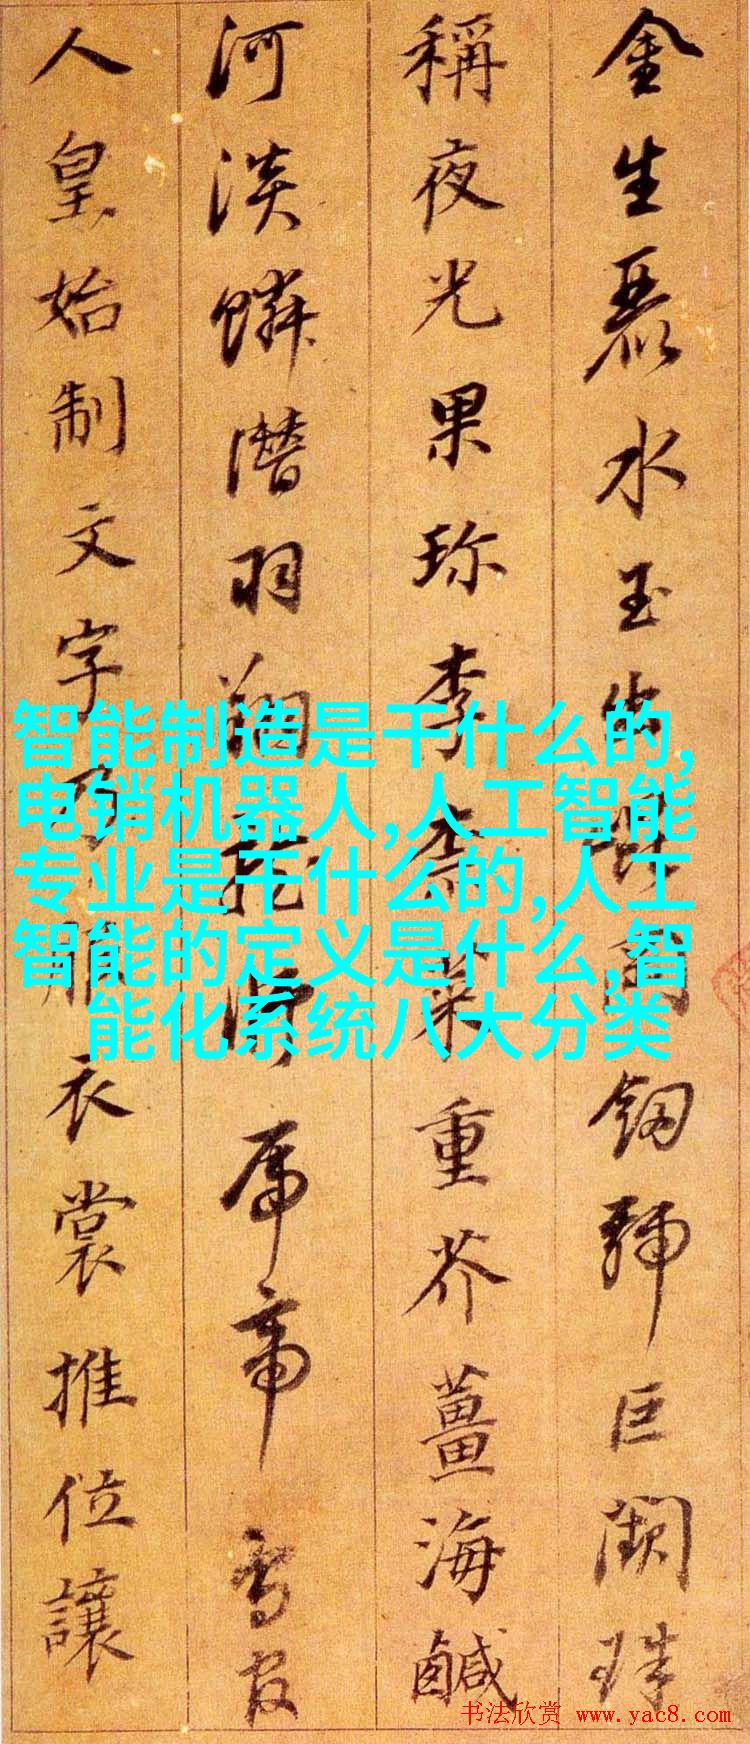 金生麗水玉出崑岡劒號巨闕珠
稱夜光果珍李柰菜重芥薑海鹹
河淡鱗潛羽翔龍帝鳥官
人皇始制文字乃服衣裳推位讓
智能制造是干什么的,
电销机器人,人工智能
专业是干什么的,人工
智能的定义是什么,智
能化系统八大分类
书法欣赏 www.yac8.com